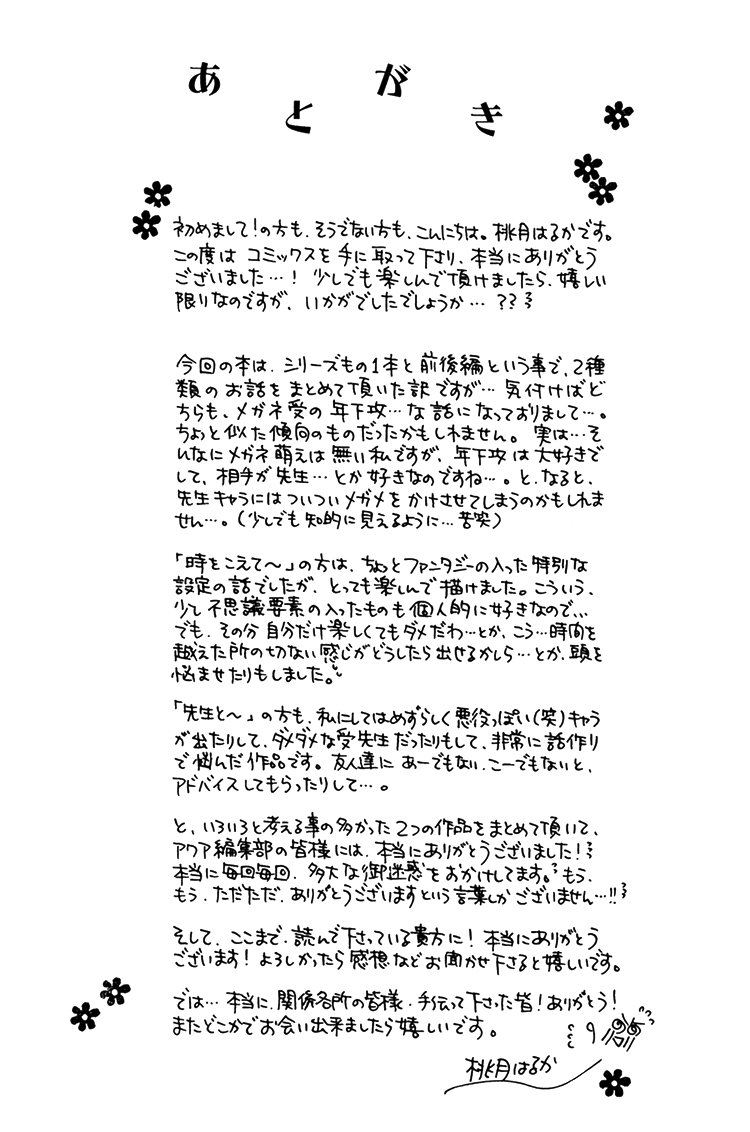 あとがき
初めまして!の方も、そうでない方も、こんにちは。桃月はるかです。
この度は コミックスを手に取って下さり、本当にありがとう
ございました…! 少しでも楽しんで頂けましたら、嬉しい
限りなのですが、いかがでしたでしょうか… ??
今回の本は、シリーズもの1本と前後編という事で、2種
類のお話をまとめて頂いた訳ですが… 気付けばど
ちらも、メガネ受の年下攻…な話になっておりまして…。
ちょっと似た傾向のものだったかもしれません。実は…そ
んなにメガネ萌えは無い私ですが、年下攻は大好きで
して、相手が先生…とか好きなのですね…。と、なると、
先生キャラにはついついメガメをかけさせてしまうのかもしれま
せん…。(少しでも知的に見えるように…苦笑)
「時をこえて〜」の方は、ちょっとファンタジーの入った特別な
設定の話でしたが、とっても楽しんで描けました。こういう、
少し不思議要素の入ったものも個人的に好きなので、、
でも、その分自分だけ楽しくてもダメだわ…とか、こう…時間を
越えた所の切ない感じがどうしたら出せるかしら…とか、頭を
悩ませたりもしました。
「先生と〜」の方も、私にしてはめずらしく悪役っぽい(笑)キャラ
が出たりして、ダメダメな受先生だったりもして、非常に話作り
で悩んだ作品です。友人達にあーでもない、こーでもないと、
アドバイスしてもらったりして…。
と、いろいろと考える事の多かった2つの作品をまとめて頂いて、
アクア編集部の皆様には、本当にありがとうございました!
本当に毎回毎回、多大な御迷惑をおかけしてます。もう、
もう、ただただ、ありがとうございますという言葉しかございません…!!
そして、ここまで、読んで下さっている貴方に! 本当にありがとう
ございます! よろしかったら感想などお聞かせ下さると嬉しいです。
では… 本当に、関係各所の皆様・手伝って下さった皆!ありがとう!
またどこかでお会い出来ましたら嬉しいです。
桃月はるか